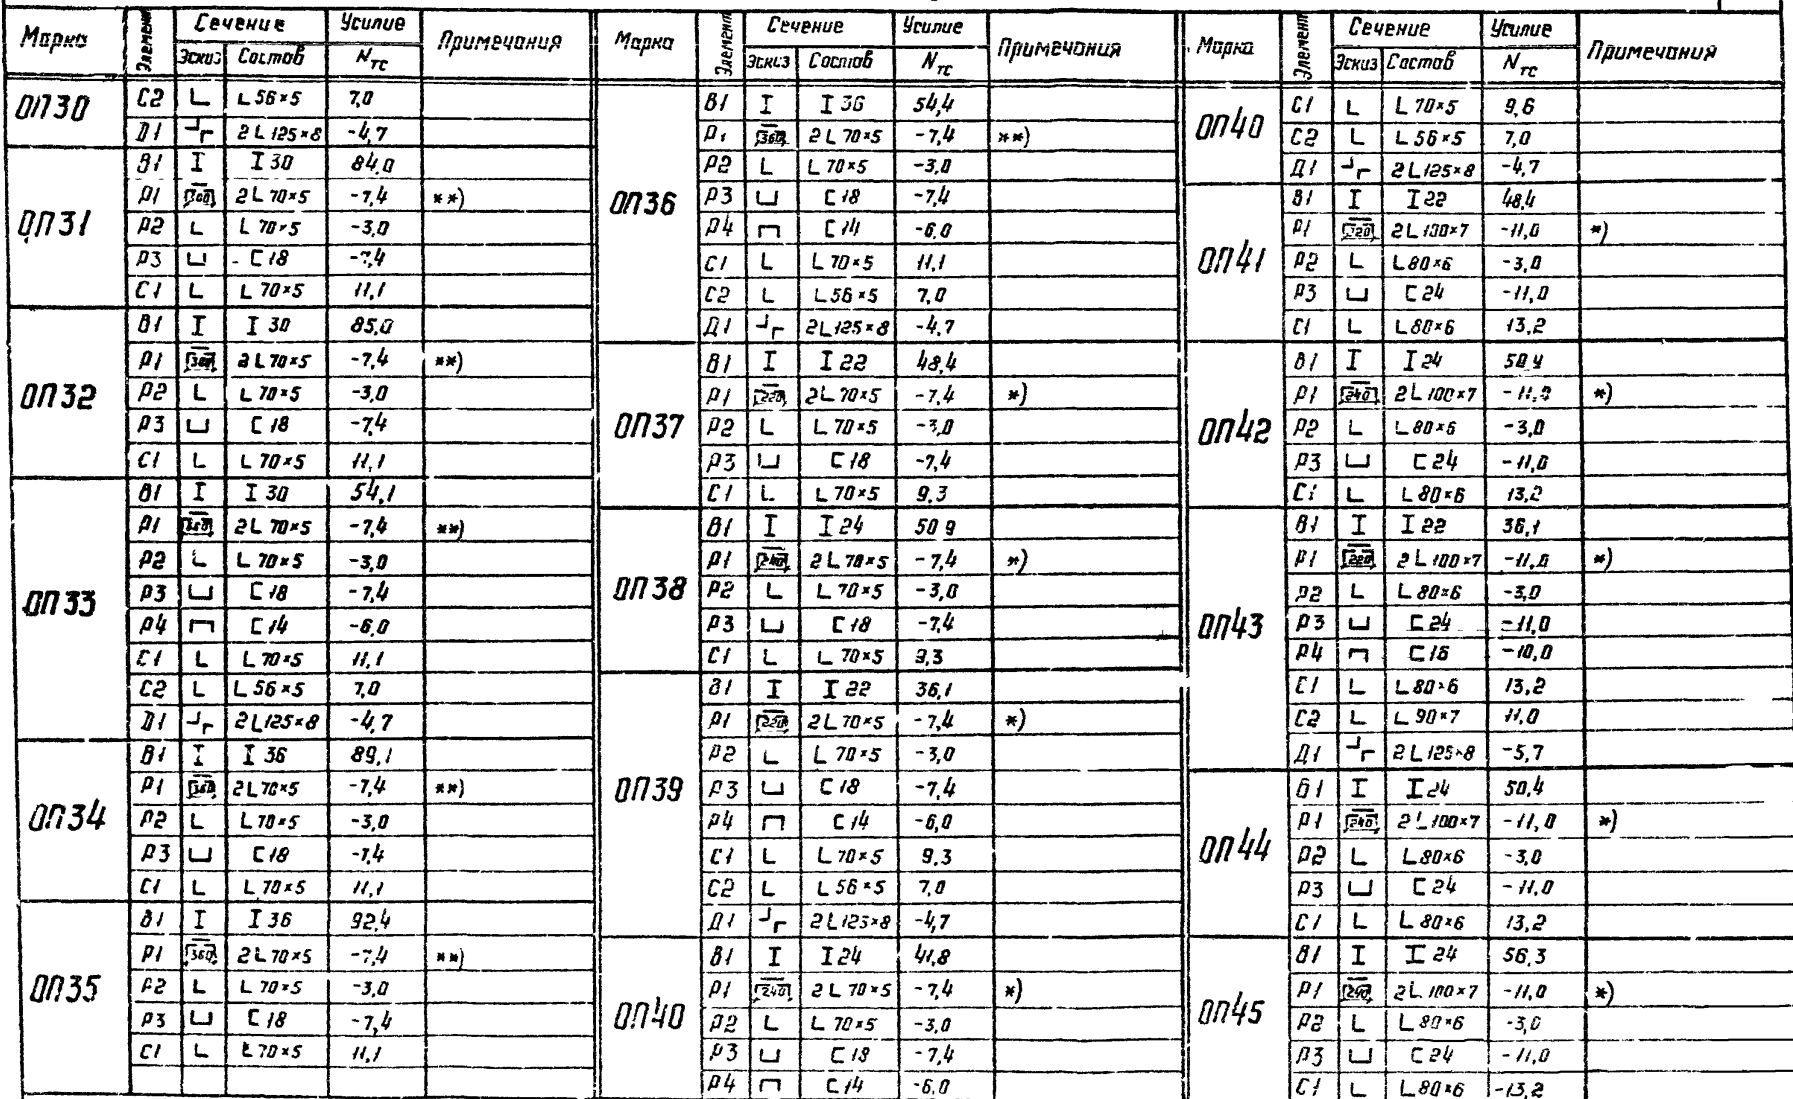 Марка Элемент Сечение Усилие Примечания
Эскиз Состав Nтс
ОП30 С2 L 56×5 7,0
Д1 2L 125×8 -4,7
ОП31 В1 I 30 84,0
Р1 360 2L 70×5 -7,4 **)
Р2 L 70×5 -3,0
Р3 [ 18 -7,4
С1 L 70×5 11,1
ОП32 В1 I 30 85,0
Р1 360 2L 70×5 -7,4 **)
Р2 L 70×5 -3,0
Р3 [ 18 -7,4
С1 L 70×5 11,1
ОП33 В1 I 30 54,1
Р1 2L 70×5 -7,4 **)
Р2 L 70×5 -3,0
Р3 [ 18 -7,4
Р4 [ 14 -6,0
С1 L 70×5 11,1
С2 L 56×5 7,0
Д1 2L 125×8 -4,7
ОП34 В1 I 36 89,1
Р1 360 2L 70×5 -7,4 **)
Р2 L 70×5 -3,0
Р3 [ 18 -7,4
С1 L 70×5 11,1
ОП35 В1 I 36 92,4
Р1 360 2L 70×5 -7,4 **)
Р2 L 70×5 -3,0
Р3 [ 18 -7,4
С1 L 70×5 11,1
Марка Элемент Сечение Усилие Примечания
Эскиз Состав Nтс
ОП36 В1 I 36 54,4
Р1 360 2L 70×5 -7,4 **)
Р2 L 70×5 -3,0
Р3 [ 18 -7,4
Р4 [ 14 -6,0
С1 L 70×5 11,1
С2 L 56×5 7,0
Д1 2L 125×8 -4,7
ОП37 В1 I 22 48,4
Р1 220 2L 70×5 -7,4 *)
Р2 L 70×5 -3,0
Р3 [ 18 -7,4
С1 L 70×5 9,3
ОП38 В1 I 24 50 9
Р1 240 2L 70×5 -7,4 *)
Р2 L 70×5 -3,0
Р3 [ 18 -7,4
С1 L 70×5 9,3
ОП39 В1 I 22 36,1
Р1 220 2L 70×5 -7,4 *)
Р2 L 70×5 -3,0
Р3 [ 18 -7,4
Р4 [ 14 -6,0
С1 L 70×5 9,3
С2 L 56×5 7,0
Д1 2L 125×8 -4,7
ОП40 В1 I 24 41,8
Р1 240 2L 70×5 -7,4 *)
Р2 L 70×5 -3,0
Р3 [ 18 -7,4
Р4 [ 14 -6,0
Марка Элемент Сечение Усилие Примечания
Эскиз Состав Nтс
ОП40 С1 L 70×5 9,6
С2 L 56×5 7,0
Д1 2L 125×8 -4,7
ОП41 В1 I 22 48,4
Р1 220 2L 100×7 -11,0 *)
Р2 L 80×6 -3,0
Р3 [ 24 -11,0
С1 L 80×6 13,2
ОП42 В1 I 24 50,9
Р1 240 2L 100×7 -11,0 *)
Р2 L 80×6 -3,0
Р3 [ 24 -11,0
С1 L 80×6 13,2
ОП43 В1 I 22 36,1
Р1 220 2L 100×7 -11,0 *)
Р2 L 80×6 -3,0
Р3 [ 24 -11,0
Р4 [ 16 -10,0
С1 L 80×6 13,2
С2 L 90×7 11,0
Д1 2L 125×8 -5,7
ОП44 В1 I 24 50,4
Р1 240 2L 100×7 -11,0 *)
Р2 L 80×6 -3,0
Р3 [ 24 -11,0
С1 L 80×6 13,2
ОП45 В1 I 24 56,3
Р1 240 2L 100×7 -11,0 *)
Р2 L 80×6 -3,0
Р3 [ 24 -11,0
С1 L 80×6 -13,2